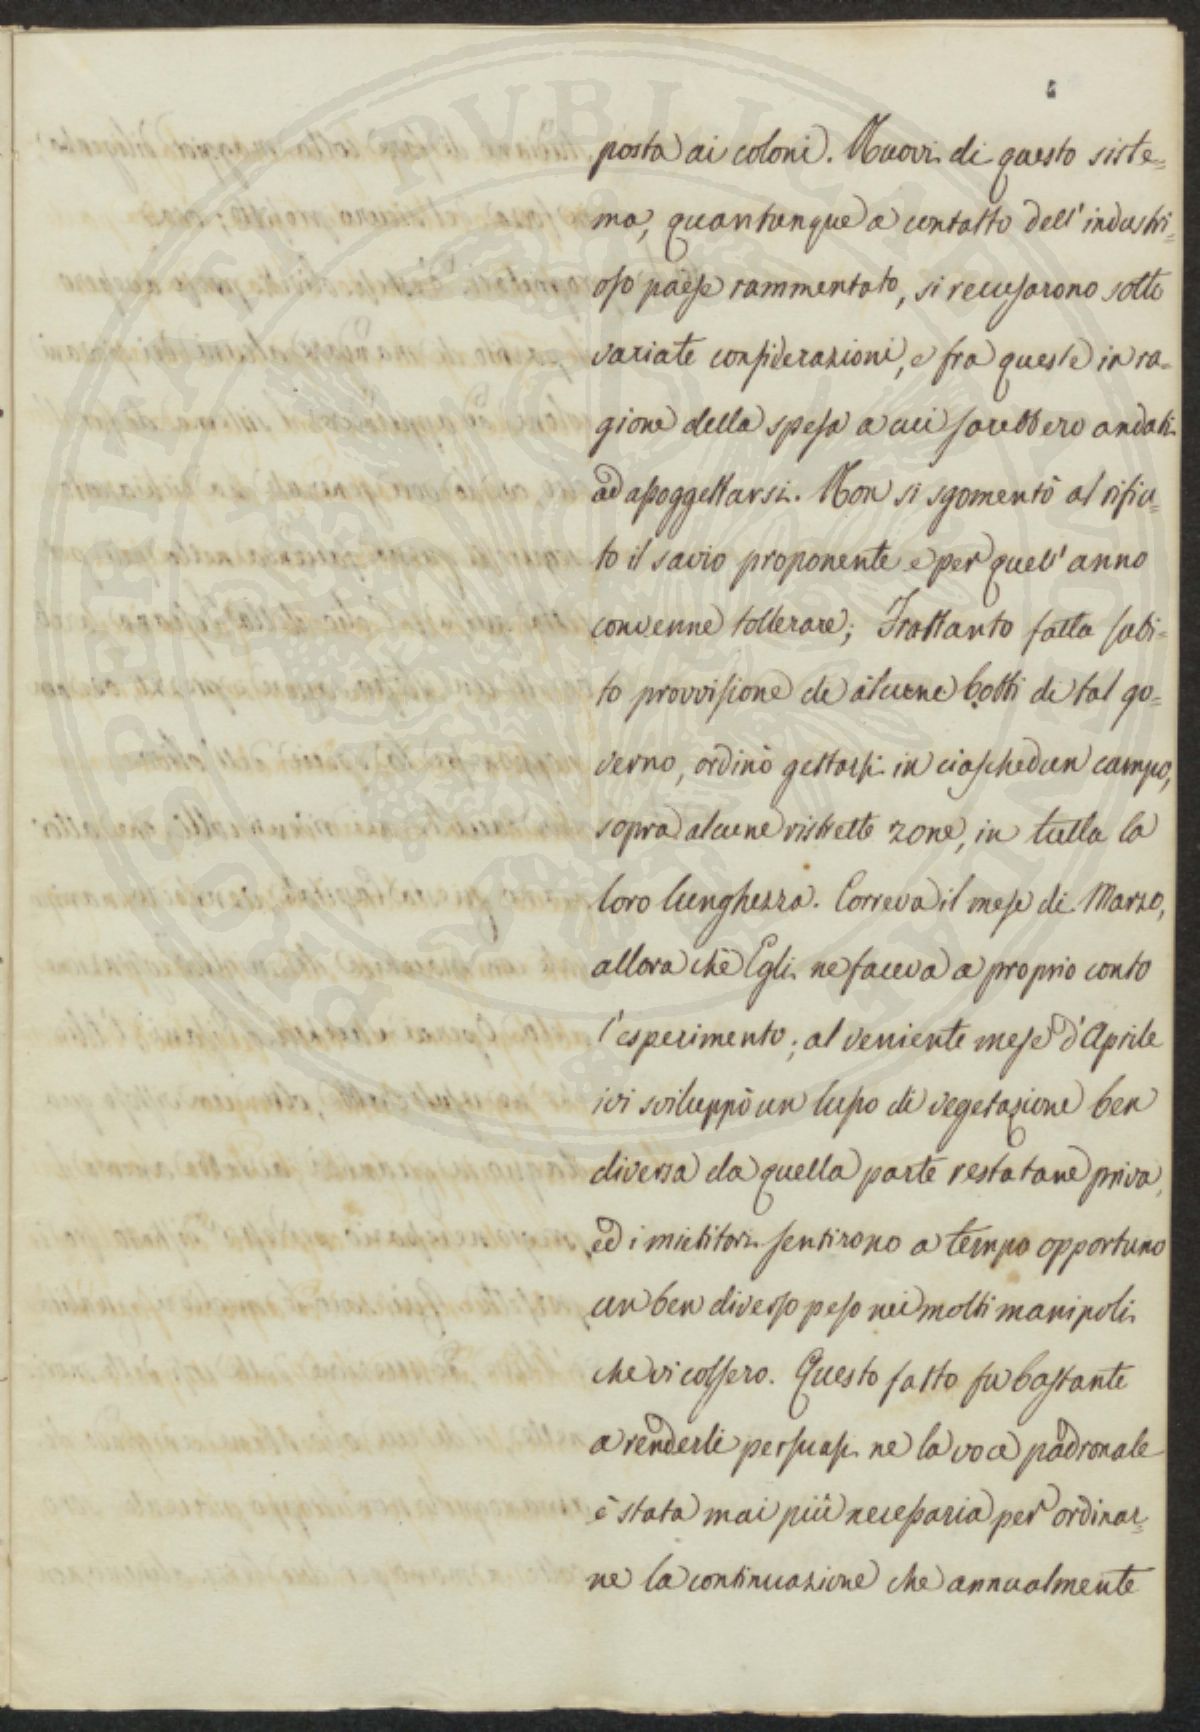 posta ai coloni. Nuovi di questo siste=
ma, quantunque a contatto dell' industri=
oso paese rammentato, si recusarono sotto
variate considerazioni, e fra queste in ra=
gione della spesa a cui sarebbero andati
ad assoggettarsi. Non si sgomentò al rifiu=
to il savio proponente e per quell' anno
convenne tollerare; Frattanto fatta subi=
to provvisione di alcune botti di tal go=
verno, ordinò gettarsi in ciaschedun campo,
sopra alcune ristrette zone, in tutta la
loro lunghezza. Correva il mese di Marzo,
allora chè Egli ne faceva a proprio conto
l'esperimento; al veniente mese d'Aprile
ivi sviluppò un lusso di vegetazione ben
diversa da quella parte restatane priva,
ed i mietitori sentirono a tempo opportuno
un ben diverso peso nei molti manipoli
che vi colsero. Questo fatto fu bastante
a renderli persuasi ne la voce padronale
è stata mai più necessaria per ordinar=
ne la continuazione che annualmente